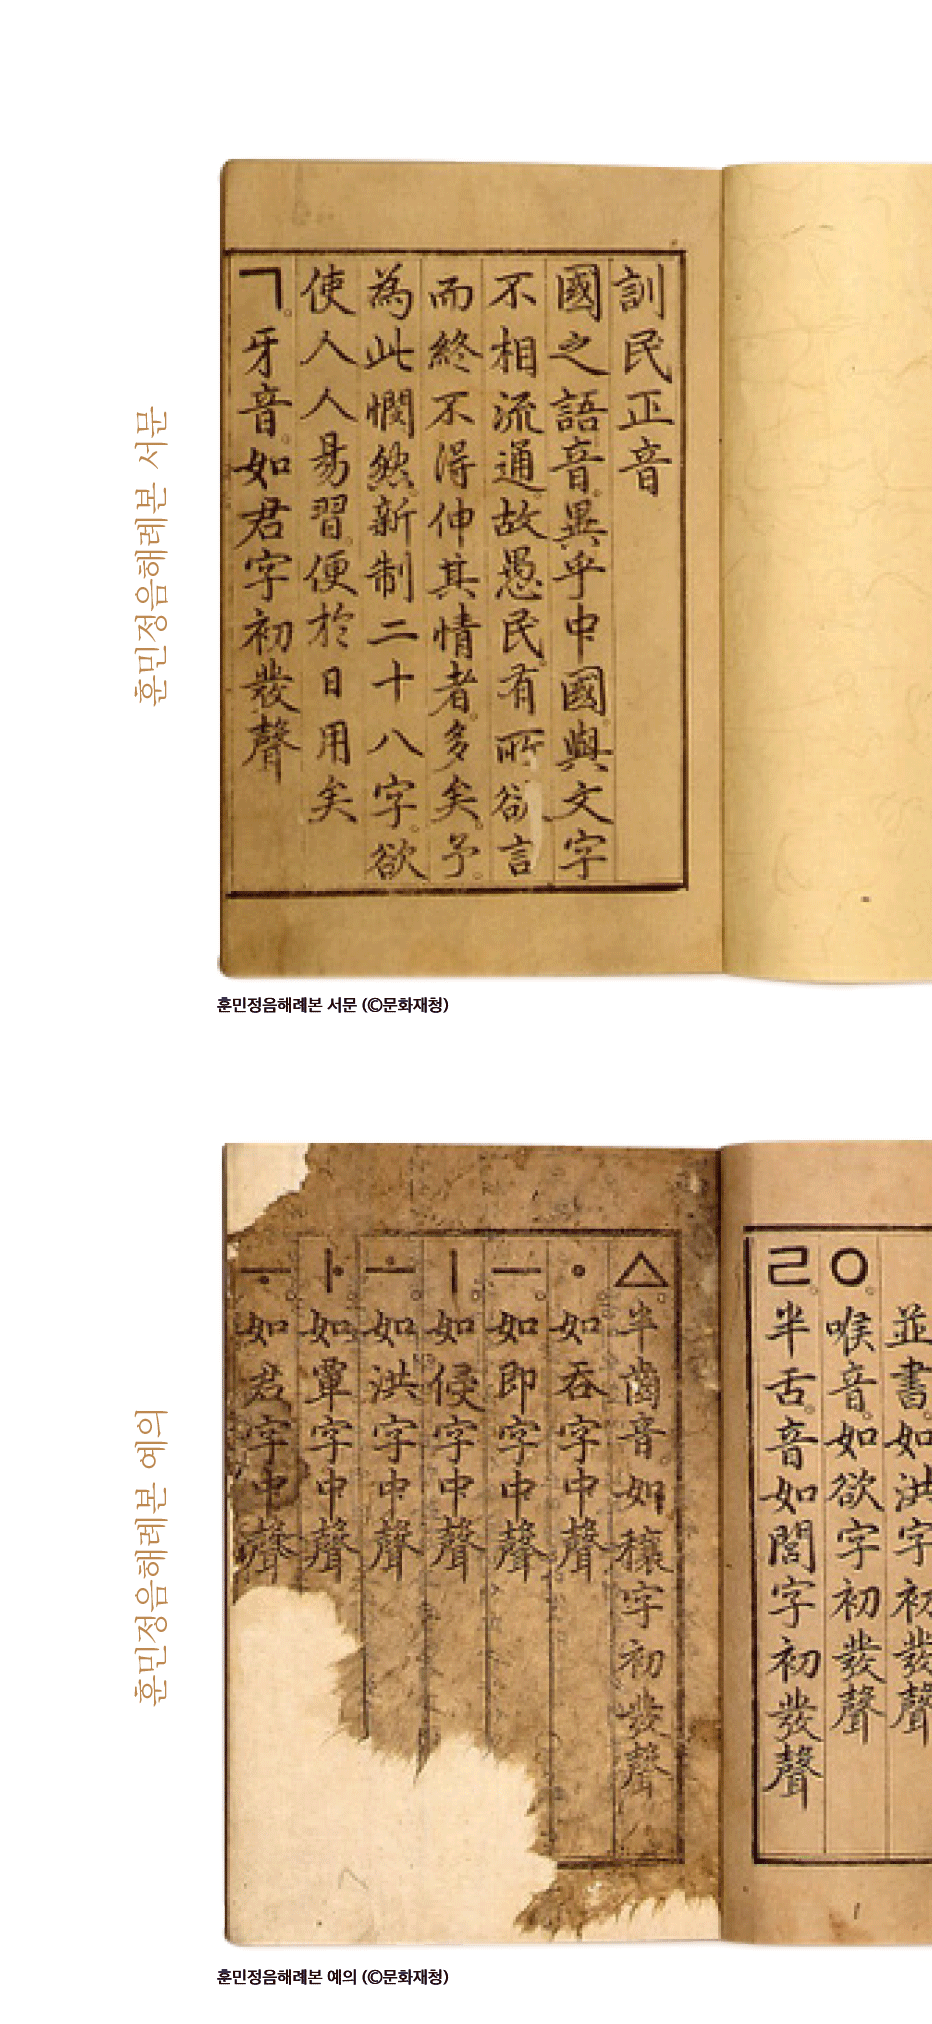 훈민정음해례본 서문
訓民正音
國之語音。異乎中國。與文字
不相流通。故愚民。有所欲言
而終不得伸其情者。多矣。予。
為此憫然。新制二十八字。欲
使人人易習。便於日用矣
ㄱ。牙音。如君字初發聲
훈민정음해례본 서문 (©문화재청)
훈민정음해례본 예의
並書。如洪字初發聲
ㅇ。喉音。如欲字初發聲
ㄹ。半舌。音如閭字初發聲
ㅿ。半齒音。如穰字初發聲
ㆍ如吞字中聲
ㅡ。如即字中聲
ㅣ。如侵字中聲
ㅗ。如洪字中聲
ㅏ。如覃字中聲
ㅜ。如君字中聲
훈민정음해례본 예의 (©문화재청)